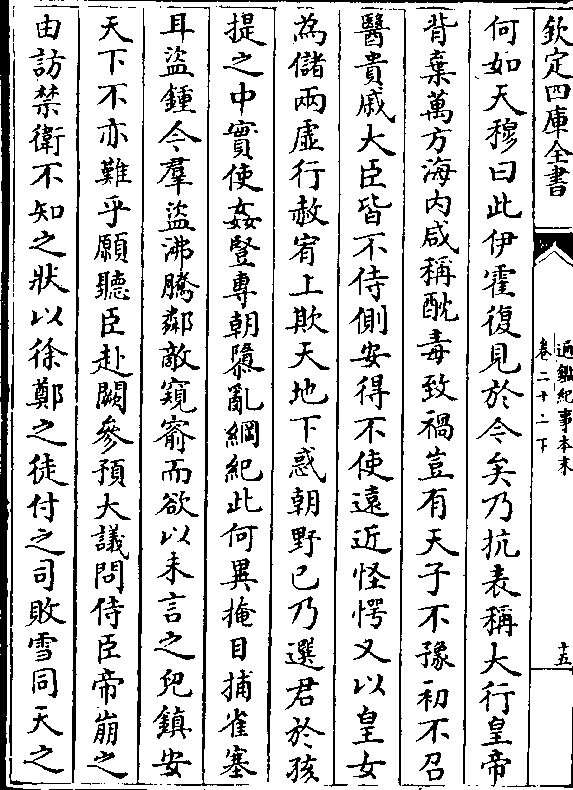 欽定四庫全書
通鑑紀事本末
卷二十二下
十五
何如天穆曰此伊霍復見於今矣乃抗表稱大行皇帝
背棄萬方海内咸稱酖毒致禍豈有天子不豫初不召
醫貴戚大臣皆不侍側安得不使遠近怪愕又以皇女
為儲兩虚行赦宥上欺天地下惑朝野已乃選君於孩
提之中實使姦豎專朝隳亂綱紀此何異掩目捕雀塞
耳盗鍾今羣盗沸騰鄰敵窺窬而欲以未言之兒鎮安
天下不亦難乎願聽臣赴闕參預大議問侍臣帝崩之
由訪禁衛不知之狀以徐鄭之徒付之司敗雪同天之